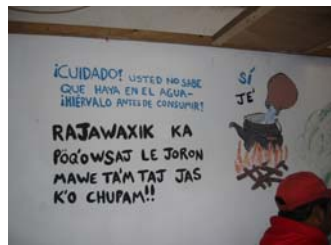 ¡CUIDADO! USTED NO SABE
QUE HAYA EN EL AGUA-
¡HIÉRVALO ANTES DE CONSUMIR!
SÍ
JE'
RAJAWAXIK KA
PÖQ'OWSAJ LE JORON
MAWE TA'M TAJ JAS
K'O CHUPAM!!